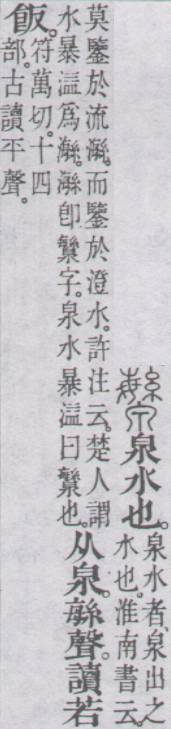 䌓泉水也。
泉水者、泉出之
水也。淮南書云。
莫鑒於流瀿。而鑒於澄水。許注云。楚人謂
水暴溢爲瀿。瀿卽䌓字。泉水暴溢曰䌓也。
从泉。緐聲。讀若
飯。
符萬切。十四
部。古讀平聲。